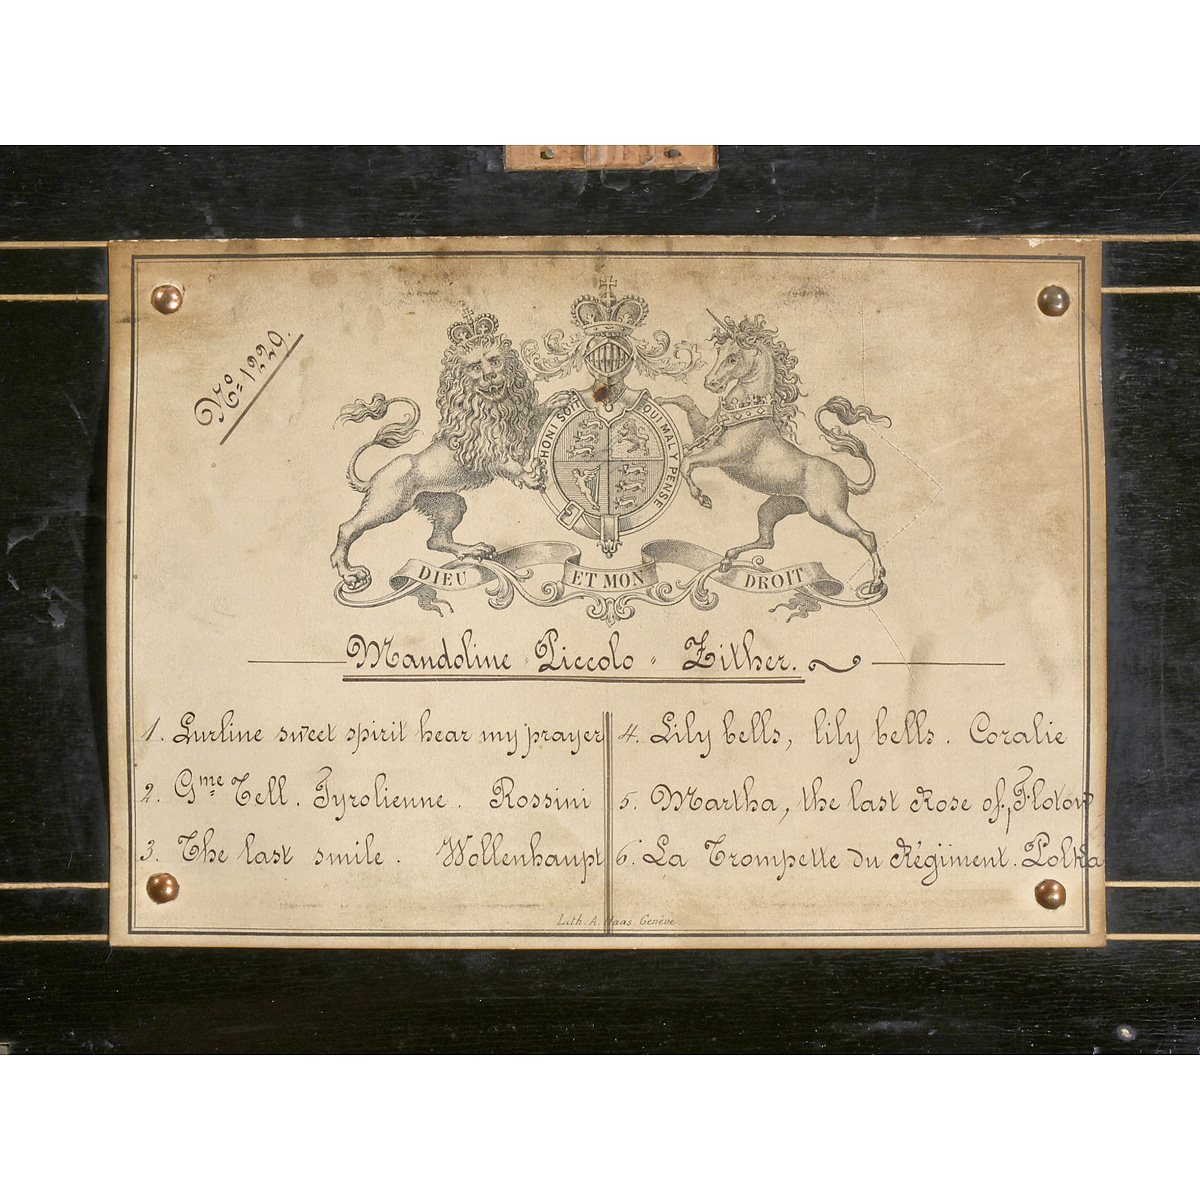 No= 1229.
HONI SOIT QUI MAL Y PENSE
DIEU ET MON DROIT
Mandoline = Piccolo = Zither.
1. Lurline sweet spirit hear my prayer
2. Gme= Tell. Tyrolienne. Rossini
3. The last smile. Wollenhaupt
4. Lily bells, lily bells. Coralie
5. Martha, the last Rose of, Flotow
6. La Trompette du Régiment. Polka
Lith. A. Haas. Genève.